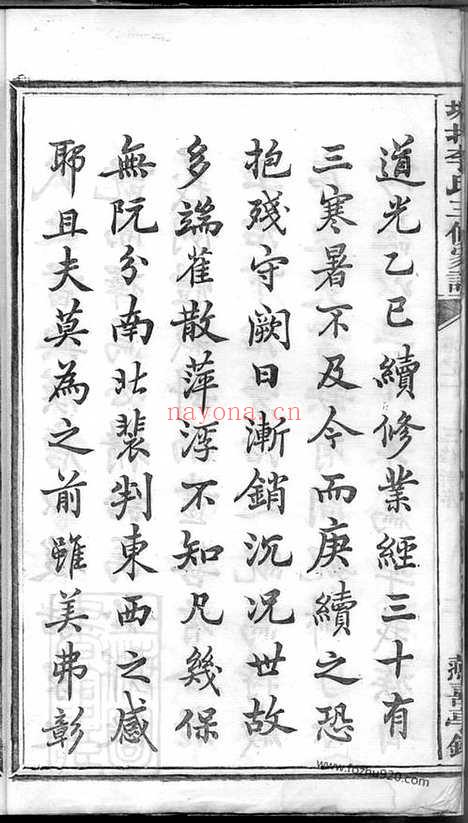 李氏三修家譜
道光乙巳續修業經三十有
三寒暑不及今而庚續之恐
抱殘守闕日漸銷沉況世故
多端雀散萍浮不知凡幾保
無阮分南北裴判東西之感
耶且夫莫為之前雖美弗彰
nayona.cn
www.fozhu920.com